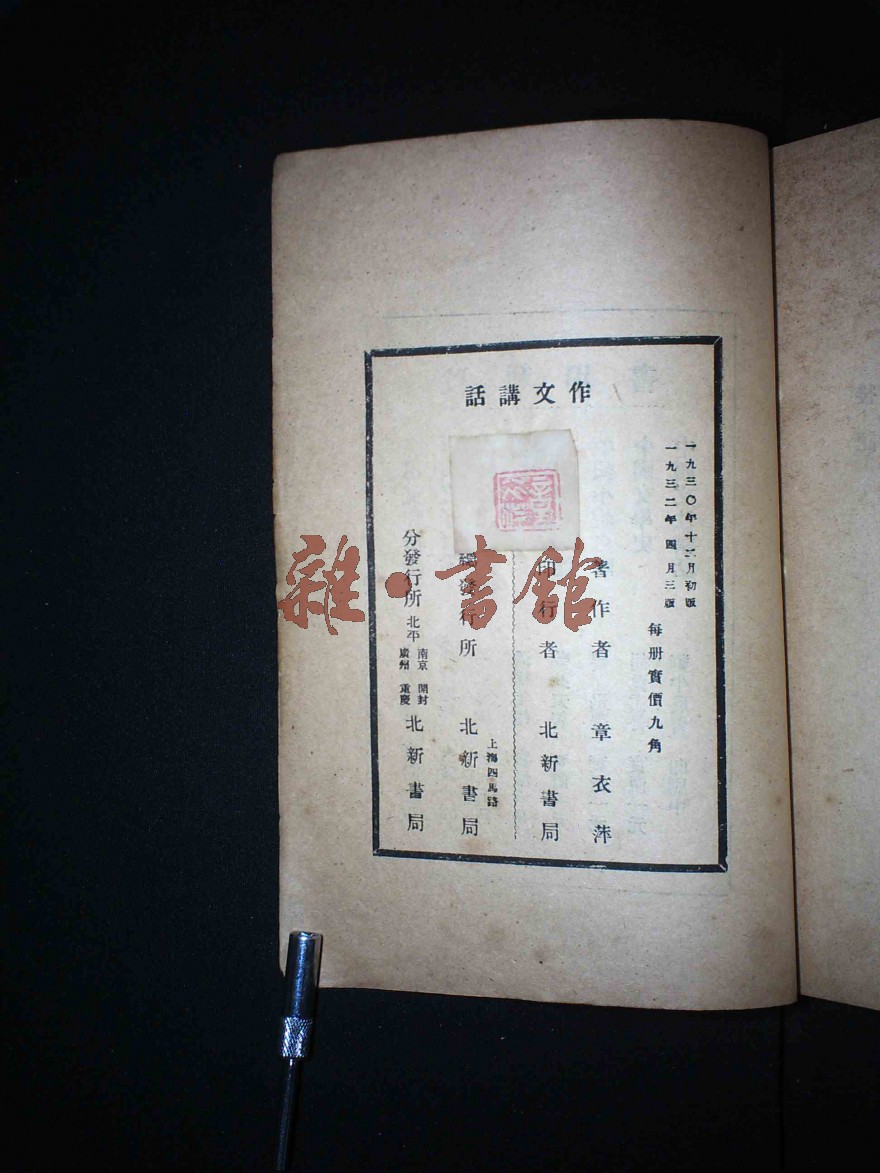 作文講話
一九三〇年十二月初版
一九三二年四月三版
每册實價九角
著作者 章衣萍
印行者 北新書局
上海四馬路
總發行所 北新書局
分發行所 北平 南京 開封 廣州 重慶 北新書局
雜·書館